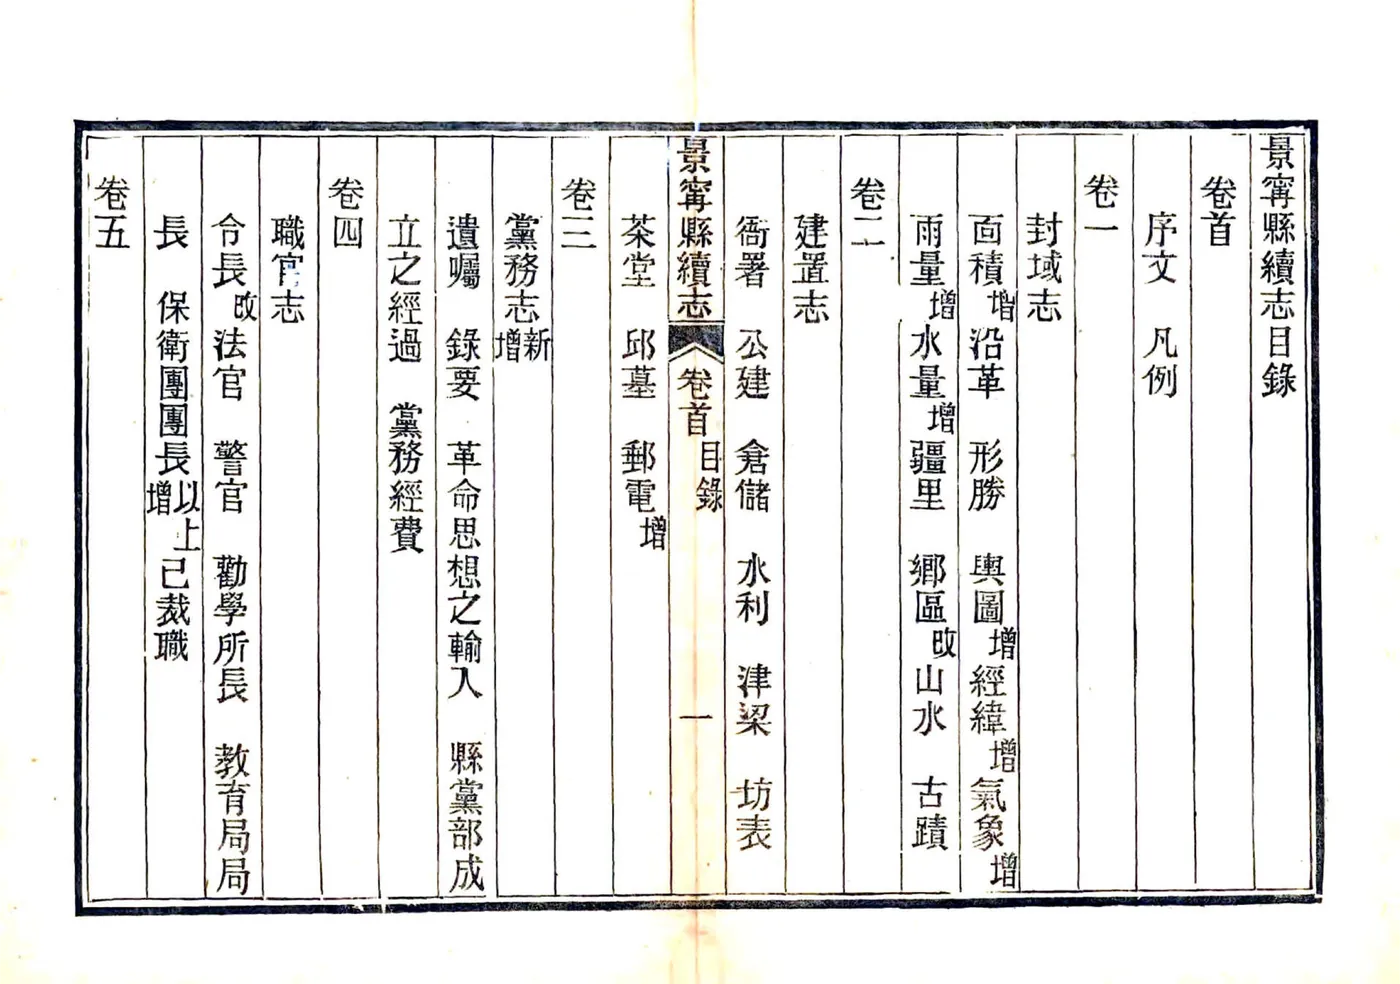 景甯縣續志目錄
卷首
序文　凡例
卷一
封域志
面積增沿革　形勝　輿圖增經緯增氣象增
雨量增水量增疆里　鄉區改山水　古蹟
卷二
建置志
衙署　公建　倉儲　水利　津梁　坊表
景甯縣續志　卷首　目錄　一
茶堂　邱墓　郵電增
卷三
黨務志新增
遺囑　錄要　革命思想之輸入　縣黨部成
立之經過　黨務經費
卷四
職官志
令長改法官　警官　勸學所長　教育局局
長　保衛團團長以上增己裁職
卷五